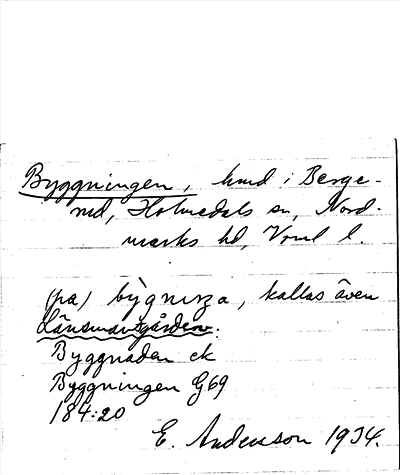 Byggningen, hmd i Berge-
rud, Holmedals sn, Nord-
marks hd, Vrml l.
(på) bỳgnıŋa, kallas även
Länsmantgården.
Byggnaden ek
Byggningen G69
184:20
E. Andersson 1934.